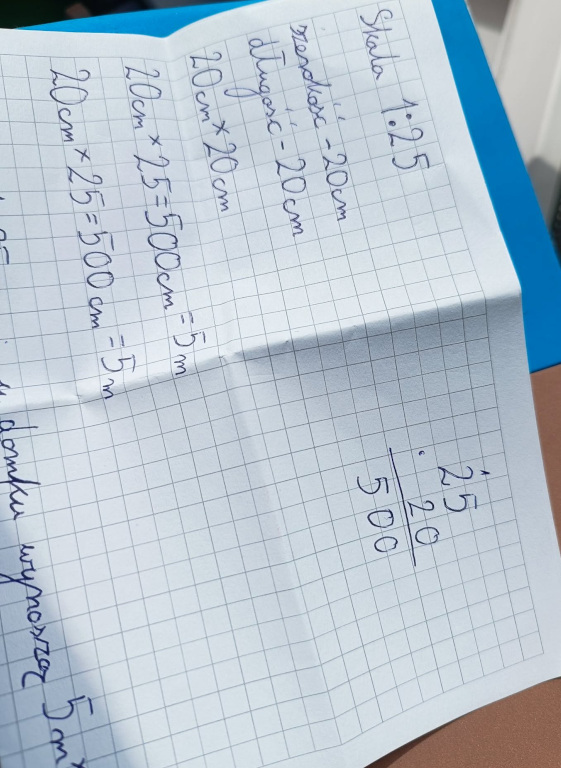 Skala 1:25
szerokość - 20cm
długość - 20cm
20cm × 20cm
20cm × 25 = 500cm = 5m
20cm × 25 = 500cm = 5m
25
· 20
500
domku wynoszą 5m